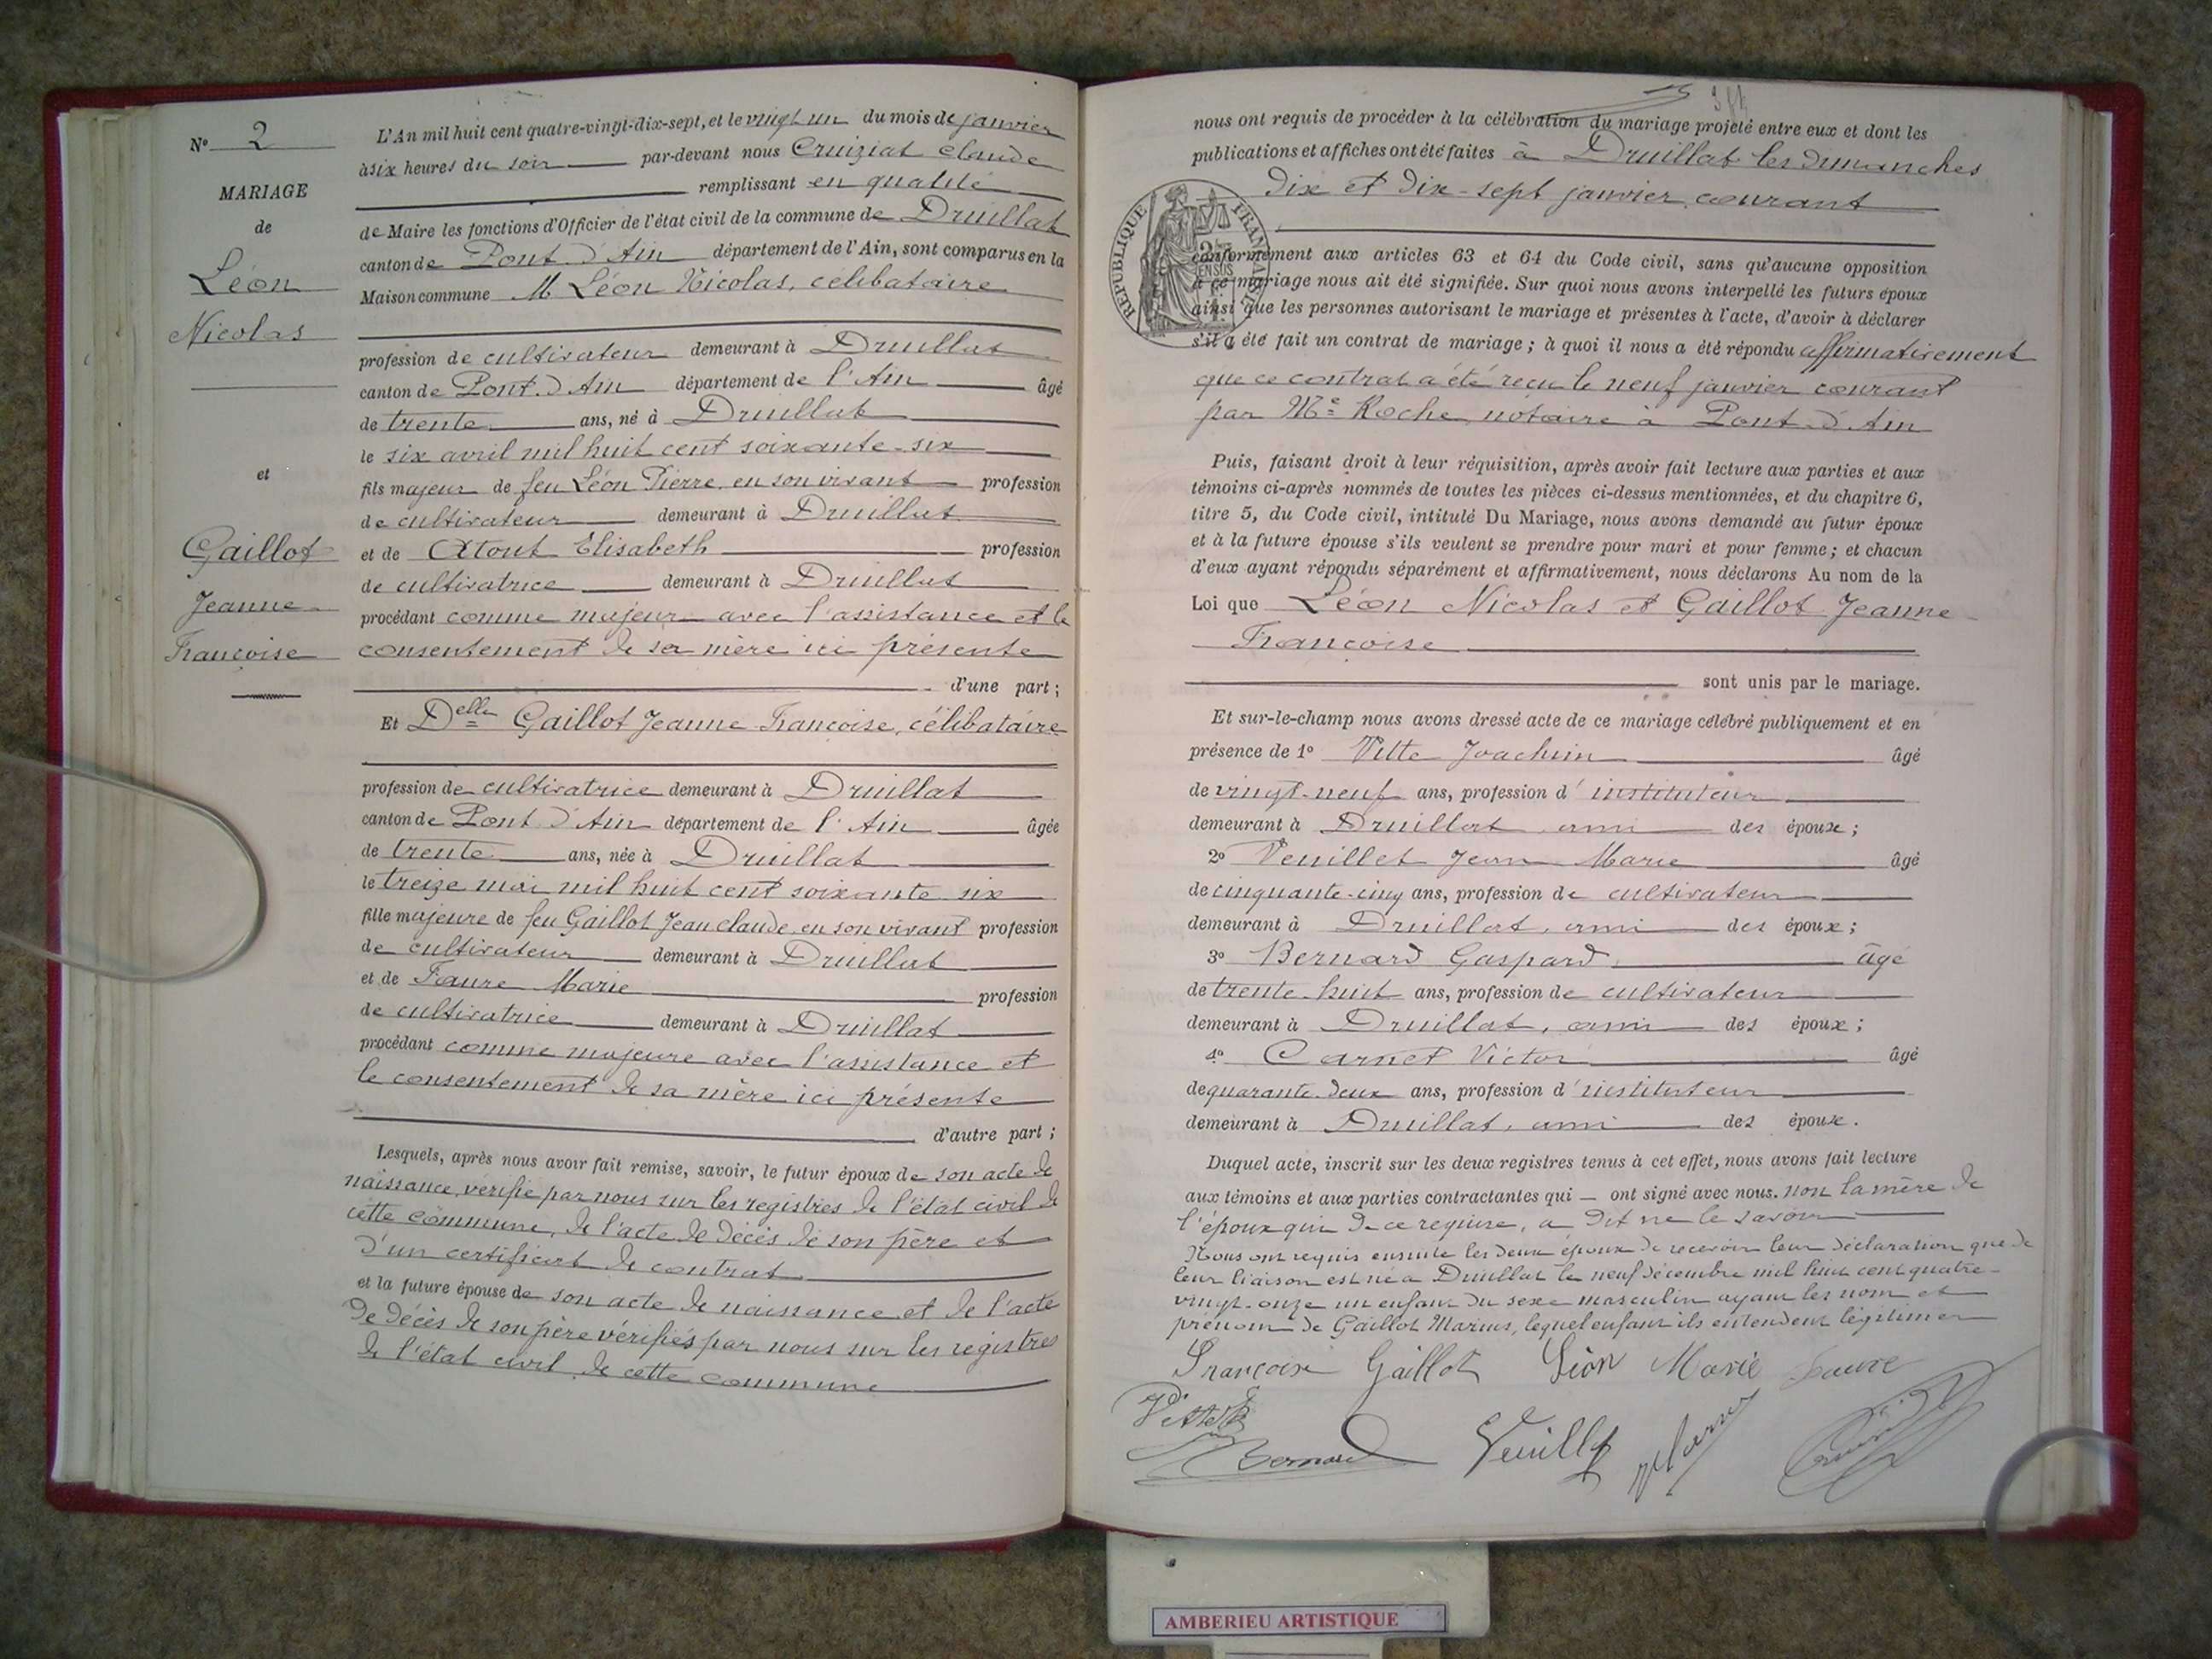 Nº 2
MARIAGE
de
Léon
Nicolas
et
Gaillot
Jeanne
Françoise
L'An mil huit cent quatre-vingt-dix-sept, et le vingt un du mois de janvier
à six heures du soir par-devant nous Cruiziat Claude
remplissant en qualité
de Maire les fonctions d'Officier de l'état civil de la commune de Druillat
canton de Pont d'Ain département de l'Ain, sont comparus en la
Maison commune M Léon Nicolas, célibataire
profession de cultivateur demeurant à Druillat
canton de Pont d'Ain département de l'Ain âgé
de trente ans, né à Druillat
le six avril mil huit cent soixante-six
fils majeur de feu Léon Pierre en son vivant profession
de cultivateur demeurant à Druillat
et de Atout Elisabeth profession
de cultivatrice demeurant à Druillat
procédant comme majeur avec l'assistance et le
consentement de sa mère ici présente
d'une part ;
Et Delle Gaillot Jeanne Françoise, célibataire
profession de cultivatrice demeurant à Druillat
canton de Pont d'Ain département de l'Ain âgée
de trente ans, née à Druillat
le treize mai mil huit cent soixante six
fille majeure de feu Gaillot Jean Claude en son vivant profession
de cultivateur demeurant à Druillat
et de Faure Marie profession
de cultivatrice demeurant à Druillat
procédant comme majeure avec l'assistance et
le consentement de sa mère ici présente
d'autre part ;
Lesquels, après nous avoir fait remise, savoir, le futur époux de son acte de
naissance, vérifié par nous sur les registres de l'état civil de
cette commune, de l'acte de décès de son père et
d'un certificat de contrat
et la future épouse de son acte de naissance et de l'acte
de décès de son père vérifiés par nous sur les registres
de l'état civil de cette commune
nous ont requis de procéder à la célébration du mariage projeté entre eux et dont les
publications et affiches ont été faites à Druillat les dimanches
dix et dix-sept janvier courant
RÉPUBLIQUE FRANÇAISE
conformément aux articles 63 et 64 du Code civil, sans qu'aucune opposition
à ce mariage nous ait été signifiée. Sur quoi nous avons interpellé les futurs époux
ainsi que les personnes autorisant le mariage et présentes à l'acte, d'avoir à déclarer
s'il a été fait un contrat de mariage ; à quoi il nous a été répondu affirmativement
que ce contrat a été reçu le neuf janvier courant
par Me Roche notaire à Pont-d'Ain
Puis, faisant droit à leur réquisition, après avoir fait lecture aux parties et aux
témoins ci-après nommés de toutes les pièces ci-dessus mentionnées, et du chapitre 6,
titre 5, du Code civil, intitulé Du Mariage, nous avons demandé au futur époux
et à la future épouse s'ils veulent se prendre pour mari et pour femme ; et chacun
d'eux ayant répondu séparément et affirmativement, nous déclarons Au nom de la
Loi que Léon Nicolas et Gaillot Jeanne
Françoise
sont unis par le mariage.
Et sur-le-champ nous avons dressé acte de ce mariage célébré publiquement et en
présence de 1º Vitte Joachim âgé
de vingt-neuf ans, profession d'instituteur
demeurant à Druillat ami des époux ;
2º Veuillet Jean Marie âgé
de cinquante-cinq ans, profession de cultivateur
demeurant à Druillat, ami des époux ;
3º Bernard Gaspard âgé
de trente-huit ans, profession de cultivateur
demeurant à Druillat, ami des époux ;
4º Carnet Victor âgé
de quarante-deux ans, profession d'instituteur
demeurant à Druillat, ami des époux.
Duquel acte, inscrit sur les deux registres tenus à cet effet, nous avons fait lecture
aux témoins et aux parties contractantes qui — ont signé avec nous. non la mère de
l'époux qui de ce requise, a dit ne le savoir
Nous ont requis ensuite les deux époux de recevoir leur déclaration que de
leur liaison est né à Druillat le neuf décembre mil huit cent quatre-
vingt-onze un enfant du sexe masculin ayant les nom et
prénom de Gaillot Marius, lequel enfant ils entendent légitimer
Françoise Gaillot Léon Marie Faure
Vitte
Bernard Veuillet
AMBERIEU ARTISTIQUE